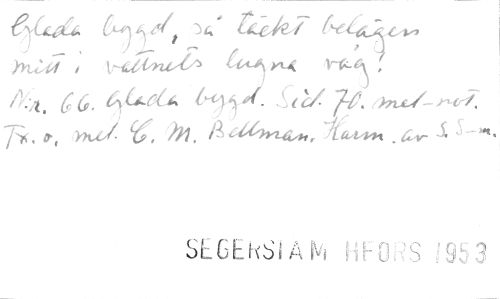 Glada bygd, så täckt belägen
mitt i vattnets lugna våg!
N:r. 66. Glada bygd. Sid. 70. mel-not.
Tx. o. mel. C. M. Bellman. Harm. av S. S-m.
SEGERSTAM HFORS 1953